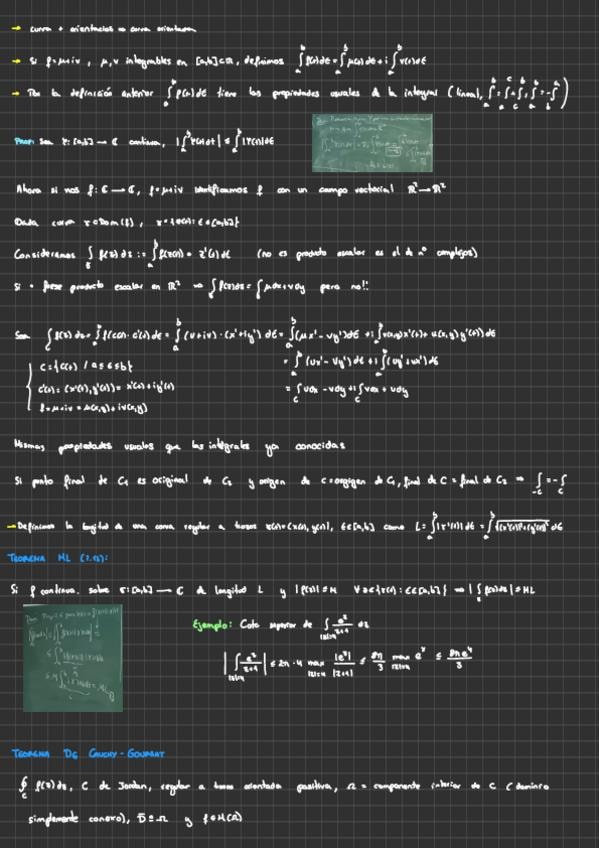 → curva + orientación ≡ curva orientada
→ Si f=μ+iv , μ,v integrables en [a,b]⊂ℝ, definimos ∫_a^b f(t)dt = ∫_a^b μ(t)dt + i∫_a^b v(t)dt
→ Por la definición anterior ∫_a^b f(t)dt tiene las propiedades usuales de la integral (lineal, ∫_a^b = ∫_a^c + ∫_c^b, ∫_a^b = -∫_b^a)
Prop: Sea γ:[a,b] → ℂ continua, |∫_a^b γ(t)dt| ≤ ∫_a^b |γ(t)|dt
Ahora si nos f: ℂ → ℂ, f=μ+iv identificamos f con un campo vectorial ℝ²→ℝ²
Dada curva γ⊂Dom(f), γ={γ(t): t∈[a,b]}
Consideramos ∫_γ f(z)dz := ∫_a^b f(z(t)) • z'(t)dt (no es producto escalar es el de nº complejos)
Si • fuese producto escalar en ℝ² ⇒ ∫f(z)dz = ∫μdx+vdy pero no!!
Sea ∫f(z)dz = ∫_a^b f(c(t))·c'(t)dt = ∫_a^b (u+iv)·(x'+iy')dt = ∫_a^b (μx'-vy')dt + i∫_a^b v(x,y)x'(t)+u(x,y)y'(t)dt
C={c(t) / a≤t≤b} = ∫_a^b (ux'-vy')dt + i∫_a^b (uy'+vx')dt
c'(t)=(x'(t),y'(t))= x'(t)+iy'(t) = ∫_C udx-vdy + i∫_C vdx+udy
f=μ+iv=μ(x,y)+iv(x,y)
Mismas propiedades usuales que las integrales ya conocidas
Si punto final de C₁ es original de C₂ y origen de C=origen de C₁, final de C = final de C₂ ⇒ ∫_{-C} = -∫_C
→ Definimos la longitud de una curva regular a trozos γ(t)=(x(t),y(t)), t∈[a,b] como L=∫_a^b |γ'(t)|dt = ∫_a^b √((x'(t))²+(y'(t))²) dt
TEOREMA ML (2.12):
Si f continua sobre γ:[a,b] → ℂ de longitud L y |f(z)|≤M ∀z∈{γ(t): t∈[a,b]} ⇒ |∫_γ f(z)dz| ≤ ML
Ejemplo: Cota superior de ∫_{|z|=4} e^z/(z+1) dz
|∫_{|z|=4} e^z/(z+1)| ≤ 2π·4 max_{|z|=4} |e^z|/|z+1| ≤ 8π/3 max_{|z|=4} e^x ≤ 8πe⁴/3
TEOREMA DE CAUCHY-GOURSAT
∮_C f(z)dz, C de Jordan, regular a trozos orientada positiva, Ω = componente interior de C (dominio
simplemente conexo), D̄=Ω y f∈H(Ω)